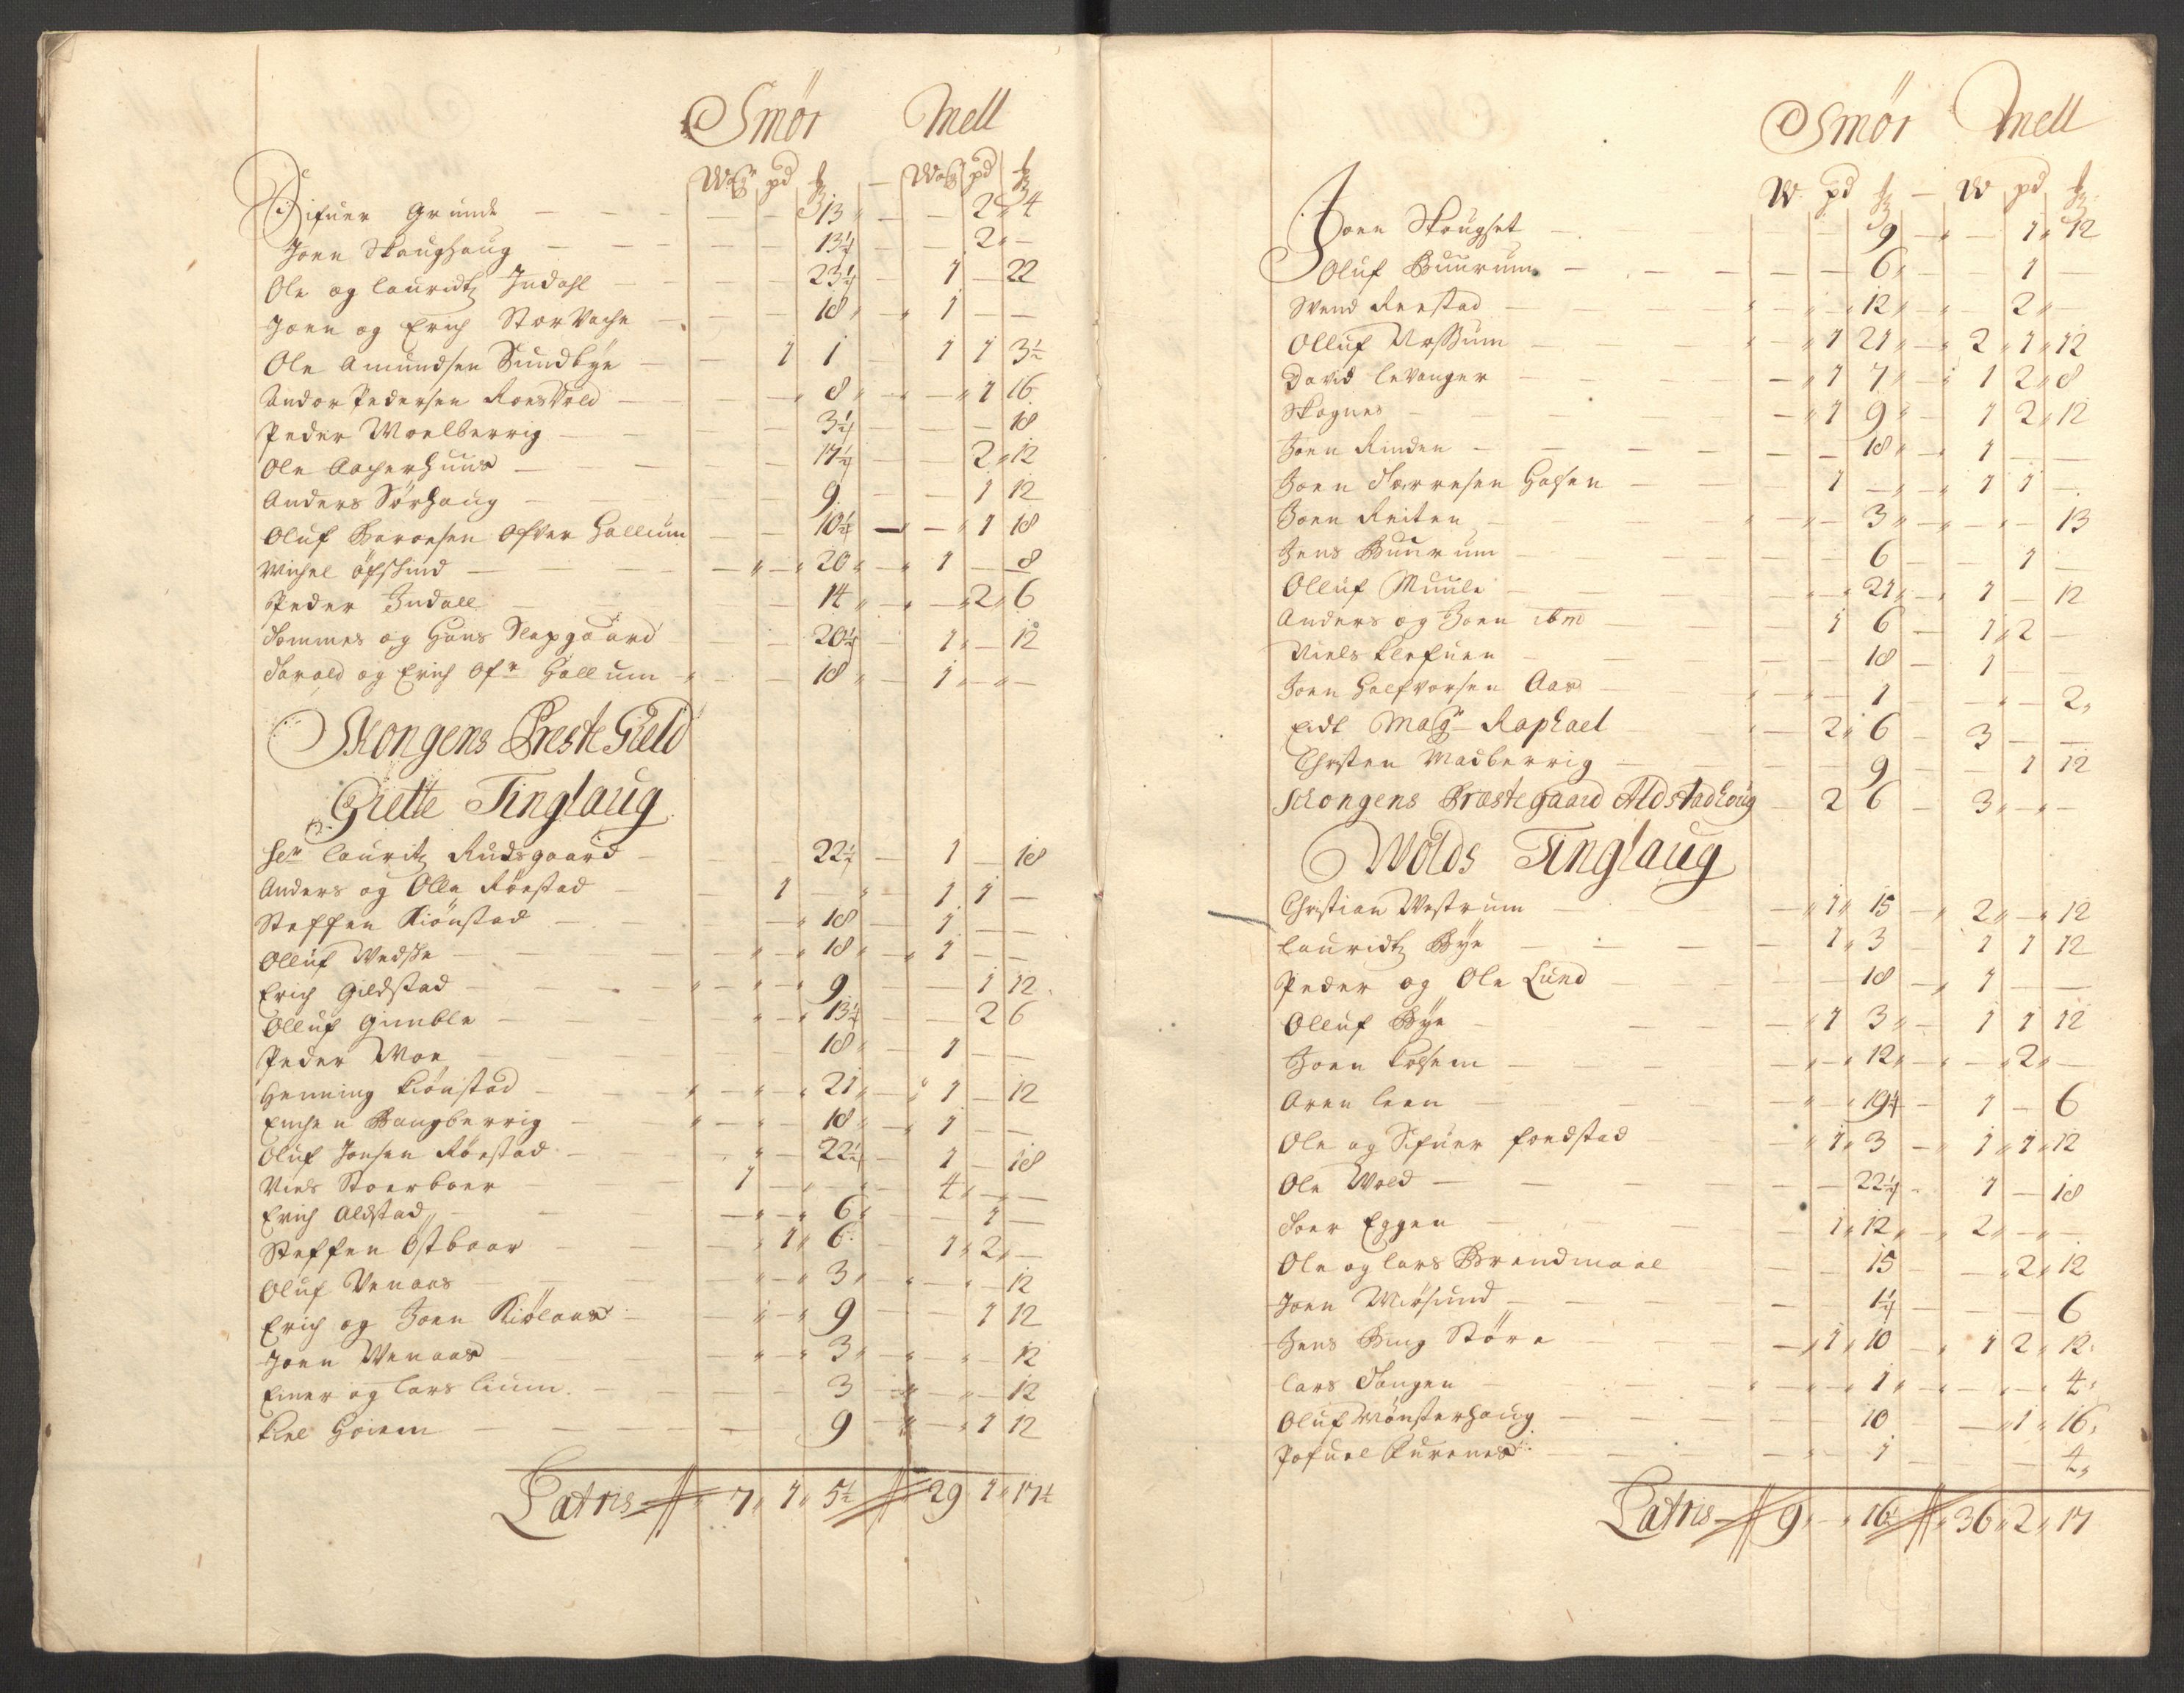 Smør Mell
Wog pd ℔ — Wog pd ℔
Sifuer Grunde — — — 13 — — 2 4
Joen Skaughaug — — — 13½ — — 2 —
Ole og Lauridtz Indahl — — — 23½ — 1 — 22
Joen og Erich StorVache — — — 18 — 1 — —
Ole Amundsen Sundbye — — 1 1 — 1 1 3½
Andor Pedersen RoesVold — — 8 — — 1 16
Peder Woelberrig — — — 3½ — — — 18
Ole Aacherhuus — — — 17½ — — 2 12
Anders Sørhaug — — 9 — — 1 12
Oluf Baroesen Ofver Hallum — — 10½ — — 1 18
Michel Øfsthind — — — 20 — 1 — 8
Peder Indall — — 14 — — 2 6
Tommes og Hans Slapgaard — — 20½ — 1 — 12
Harald og Erich Ofr Hallum — — 18 — 1 — —
Skongens Preste Gield
Grette Tinglaug
Her Lauritz Rudsgaard — 22½ — 1 — 18
Anders og Olle Røestad — — 1 — — 1 1 —
Steffen Kiønstad — — 18 — 1 — —
Olluf Wedske — — 18 — 1 — —
Erich Gildstad — — 9 — — 1 12
Olluf Gimble — — 13½ — — 2 6
Peder Moe — — 18 — 1 — —
Henning Kiønstad — — 21 — 1 — 12
Bangberrig — — 18 — 1 — —
Oluf Jonsen Røestad — — 22½ — 1 — 18
Niels Stoerboer — 1 — — — 4 — —
Erich Aldstad — — 6 — — 1 —
Steffen Østboer — — 1 6 — 1 2 —
Oluf Venaas — — 3 — — — 12
Erich og Joen Kiølaas — — 9 — — 1 12
Joen Wenaas — — 3 — — — 12
Einer og Lars Lium — — 3 — — — 12
Kiel Hoiem — — 9 — — 1 12
Latris 7 1 5½ 29 1 17½
Smør Mell
W pd ℔ — W pd ℔
Joen Skougset — 9 — — 1 12
Oluf Buurum — — 6 — 1
Svend Reestad — — 12 — — 2 —
Olluf Nossum — 1 21 — 2 1 12
David Levanger — — 1 7 — 1 2 8
Skognes — — 1 9 — 1 2 12
Joen Rinden — — 18 — 1 — —
Joen Torresen Halsen — — 1 — — 1 1 —
Joen Reiten — — 3 — — — 13
Jens Buurum — — 6 — — 1 —
Olluf Muule — — 21 — 1 — 12
Anders og Joen ibm — 1 6 — 1 2 —
Niels Klefuen — — 18 — 1 — —
Joen Halfvorsen Aas — — 1 — — — 2
Eidt Magr Raphael — 2 6 — 3 — —
Christen Madberrig — — 9 — — 1 12
Skongens Præstegaard Aldstadhoug — 2 6 — 3 — —
Wolds Tinglaug
Christian Westrum — 1 15 — 2 — 12
Lauridtz Bye — — 1 3 — 1 1 12
Peder og Ole Lund — — 18 — 1 — —
Olluf Bye — — 1 3 — 1 1 12
Joen Kolsem — — 12 — — 2 —
Aren Leen — — 19½ — 1 — 6
Ole og Sifuer Foedstad — 1 3 — 1 1 12
Ole Wold — — — 22½ — 1 — 18
Toer Eggen — — 1 12 — 2 — —
Ole og Lars Brendmoel — 15 — — 2 12
Joen Miøsund — — 1½ — — — 6
Jens Bing Støre — — 1 10 — 1 2 12
Lars Tangen — — 1 — — — 4
Oluf Mønsterhaug — — 10 — — 1 16
Pofuel Kurenes — — 1 — — — 4
Latris 9 — 16½ 36 2 17